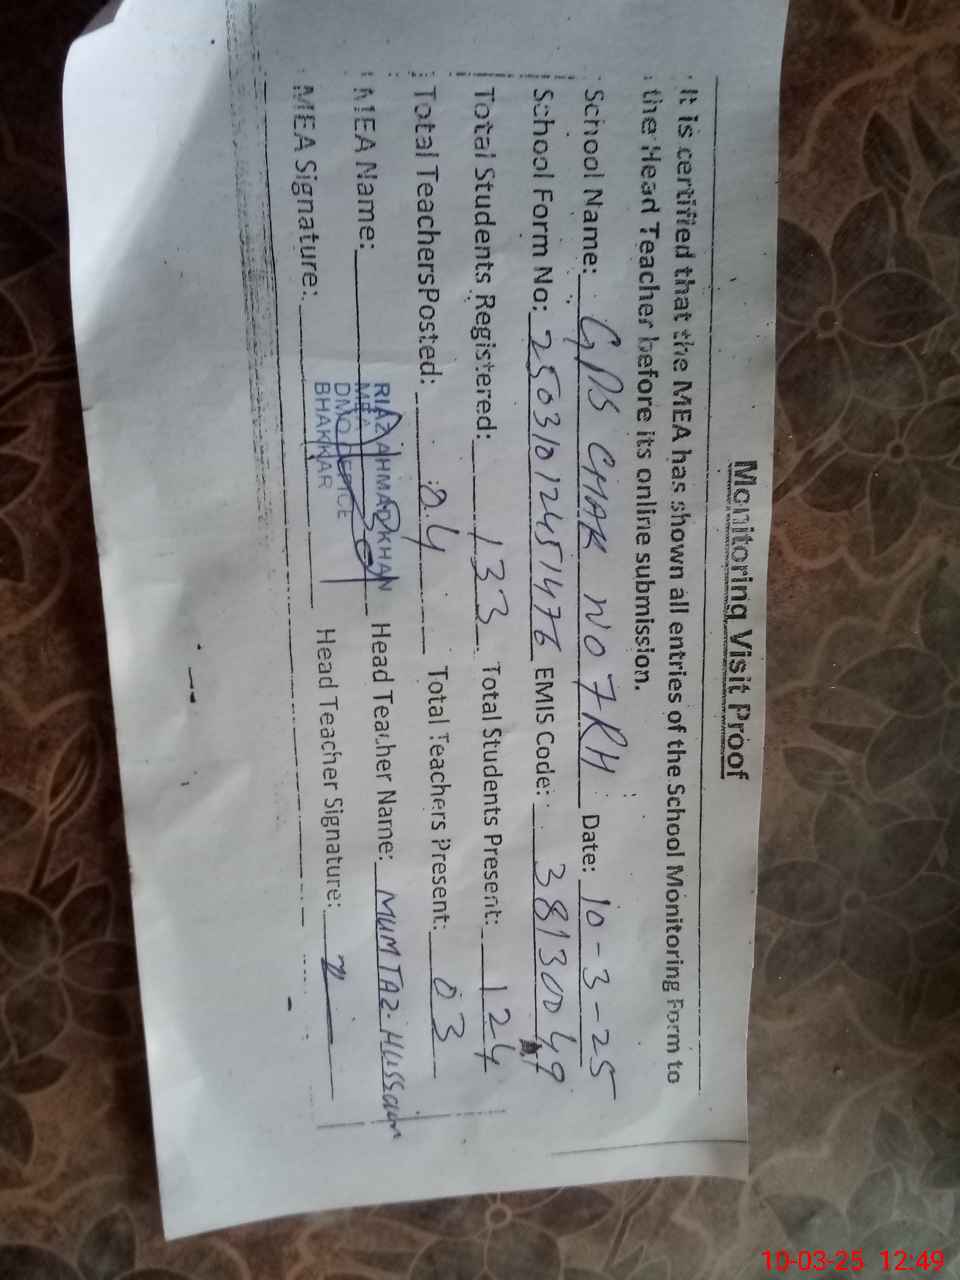 Monitoring Visit Proof
It is certified that the MEA has shown all entries of the School Monitoring Form to
the Head Teacher before its online submission.
School Name: GPS CHAK NO 7RH Date: 10-3-25
School Form No: 250310124551476 EMIS Code: 38130049
Total Students Registered: 133 Total Students Present: 124
Total TeachersPosted: 04 Total Teachers Present: 03
MEA Name: RIAZ AHMAD KHAN Head Teacher Name: MUMTAZ HUSSain
MEA
DMO OFFICE
BHAKKAR
MEA Signature: Head Teacher Signature:
10-03-25 12:49